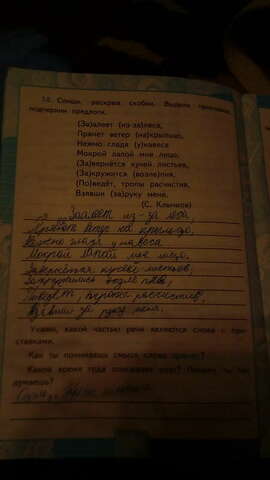 16. Спиши, раскрыв скобки. Выдели приставки, подчеркни предлоги.
(За)алеет (из-за)леса,
Прянет ветер (на)крыльцо,
Нежно гладя (у)навеса
Мокрой лапой мне лицо.
(За)вернётся кучей листьев,
(За)кружится (возле)пня,
(По)ведёт, тропы расчистив,
Взявши (за)руку меня.
(С. Клычков)
Заалеет из-за леса,
на крыльцо,
Нежно гладя у навеса
Мокрой лапой мне лицо.
кучей листьев,
возле пня,
Поведёт, тропы расчистив,
Взявши за руку меня.
Укажи, какой частью речи являются слова с приставками.
Как ты понимаешь смысл слова прянет?
Какое время года описывает поэт? Почему ты так думаешь?